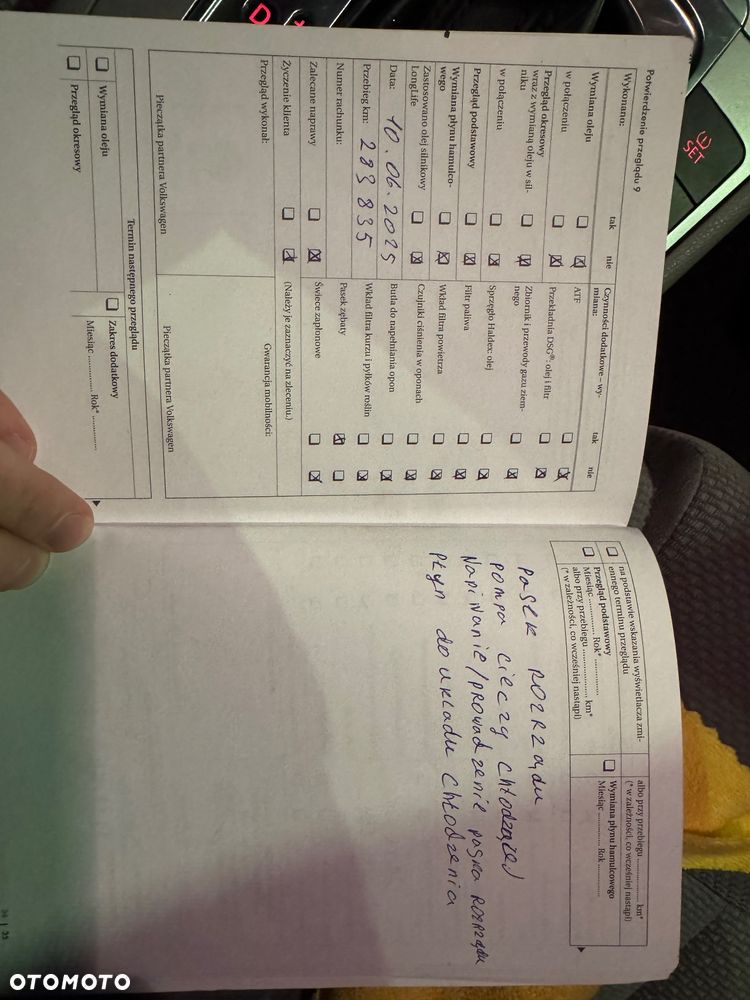 SET
D
Potwierdzenie przeglądu 9
Wykonano:
tak
nie
Wymiana oleju
w połączeniu
Przegląd okresowy
wraz z wymianą oleju w sil-
niku
w połączeniu
Przegląd podstawowy
Wymiana płynu hamulco-
wego
Zastosowano olej silnikowy
LongLife
Data: 10.06.2025
Przebieg km: 283 835
Numer rachunku:
Zalecane naprawy
Życzenie klienta
Przegląd wykonał:
Pieczątka partnera Volkswagen
Czynności dodatkowe – wy-
miana:
tak
nie
ATF
Przekładnia DSG®: olej i filtr
Zbiornik i przewody gazu ziem-
nego
Sprzęgło Haldex: olej
Filtr paliwa
Wkład filtra powietrza
Czujniki ciśnienia w oponach
Butla do napełniania opon
Wkład filtra kurzu i pyłków roślin
Pasek zębaty
Świece zapłonowe
(Należy je zaznaczyć na zleceniu.)
Gwarancja mobilności:
Pieczątka partnera Volkswagen
Termin następnego przeglądu
Wymiana oleju
Przegląd okresowy
Zakres dodatkowy
Miesiąc ............... Rok* ...............
na podstawie wskazania wyświetlacza zmi-
ennego terminu przeglądu
Przegląd podstawowy
Miesiąc ............... Rok* ...............
albo przy przebiegu ............... km*
(* w zależności, co wcześniej nastąpi)
albo przy przebiegu ............... km*
(* w zależności, co wcześniej nastąpi)
Wymiana płynu hamulcowego
Miesiąc ............... Rok ...............
Pasek rozrządu
pompa cieczy chłodzącej
Napinanie/prowadzenie paska rozrządu
Płyn do układu chłodzenia
35
OTOMOTO